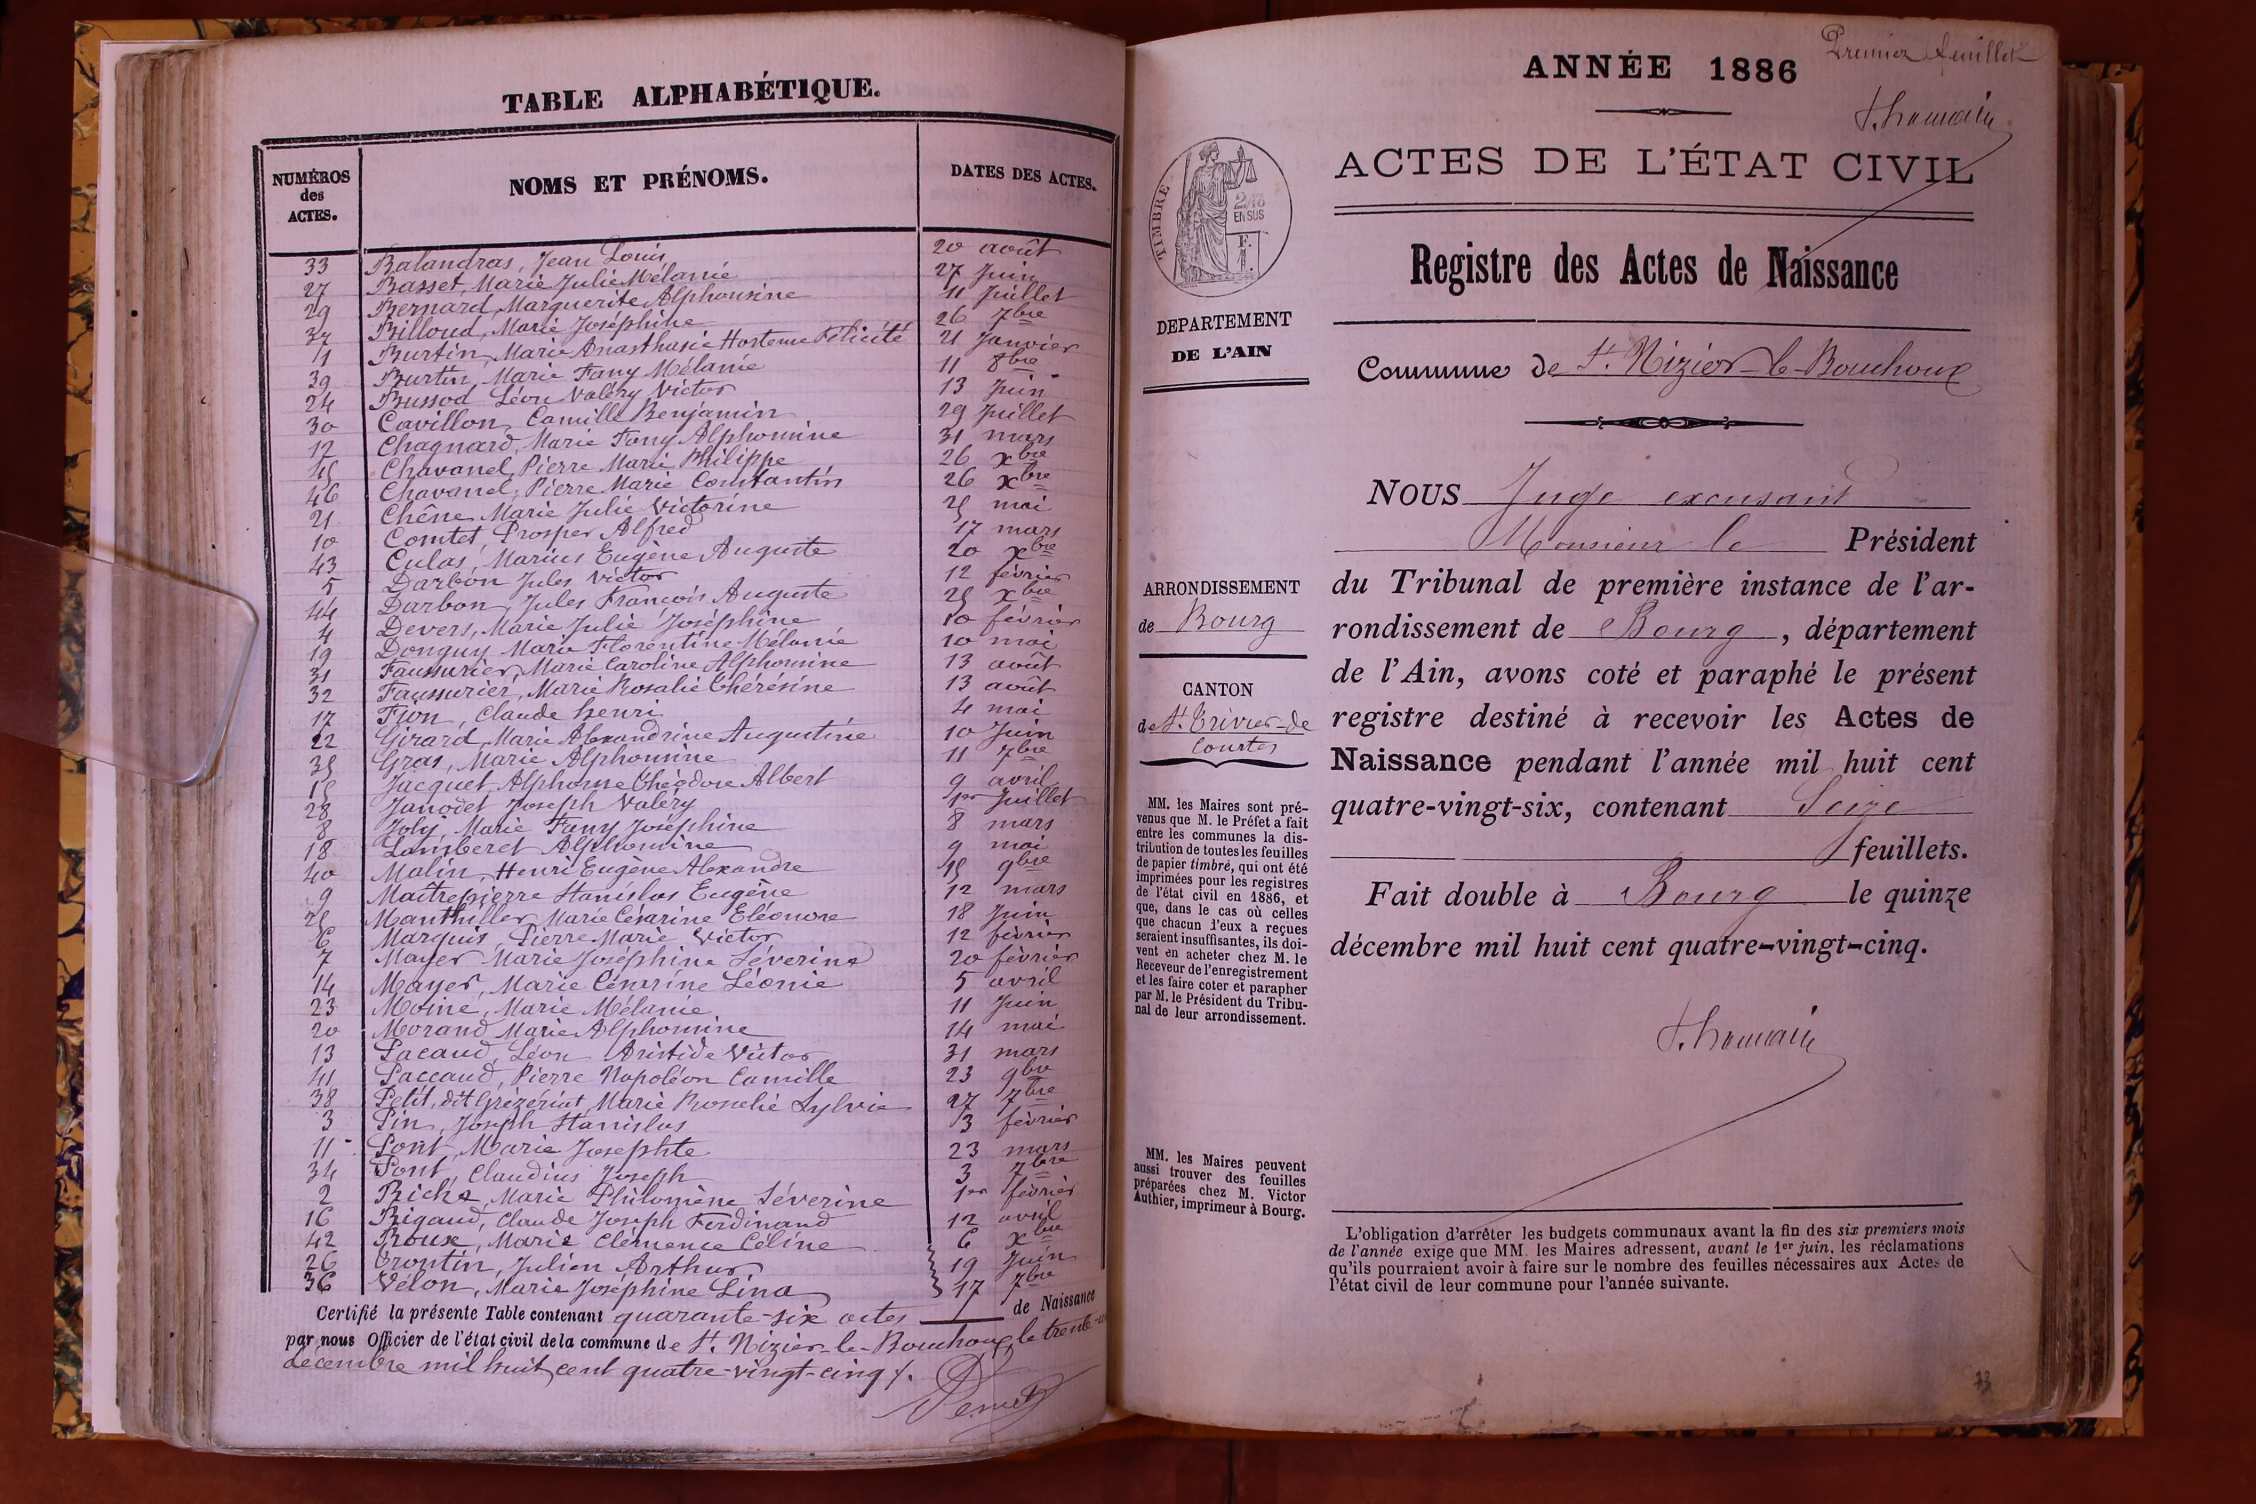 TABLE ALPHABÉTIQUE.
NUMÉROS des ACTES. NOMS ET PRÉNOMS. DATES DES ACTES.
33 Balandras, Jean Louis 20 août
27 Basset, Marie Julie Mélanie 27 Juin
29 Bernard, Marguerite Alphonsine 11 Juillet
37 Billoud, Marie Joséphine 26 7bre
1 Burtin, Marie Anasthasie Hortense Félicité 21 Janvier
39 Burtin, Marie Fany Mélanie 11 8bre
24 Bussod Léon Valéry Victor 13 Juin
30 Cavillon, Camille Benjamin 29 Juillet
12 Chagnard, Marie Fany Alphonsine 31 mars
45 Chavanel, Pierre Marie Philippe 26 xbre
46 Chavanel, Pierre Marie Constantin 26 xbre
21 Chêne, Marie Julie Victorine 25 mai
10 Comtet, Prosper Alfred 17 mars
43 Culas, Marius Eugène Auguste 20 xbre
5 Darbon Jules Victor 12 février
44 Darbon, Jules François Auguste 25 xbre
4 Devers, Marie Julie Joséphine 10 février
19 Donguy, Marie Florentine Mélanie 10 mai
31 Faussurier, Marie Caroline Alphonsine 13 août
32 Faussurier, Marie Rosalie Thérésine 13 août
17 Fion, Claude henri 4 mai
22 Girard, Marie Alexandrine Augustine 10 Juin
35 Gras, Marie Alphonsine 11 7bre
15 Jacquet, Alphonse Théodore Albert 9 avril
28 Janodet Joseph Valéry 1er Juillet
8 Joly, Marie Fany Joséphine 8 mars
18 Lamberet Alphonsine 9 mai
40 Malin, Henri Eugène Alexandre 15 9bre
9 Maîtrepierre Stanislas Eugène 12 mars
25 Manthiller, Marie Césarine Eléonore 18 Juin
6 Marquis, Pierre Marie Victor 12 février
7 Mayer Marie Joséphine Séverine 20 février
14 Mayer, Marie Césarine Léonie 5 avril
23 Moine, Marie Mélanie 11 Juin
20 Morand Marie Alphonsine 14 mai
13 Pacaud, Léon Aristide Victor 31 mars
41 Paccaud, Pierre Napoléon Camille 23 9bre
38 Petit, dit Grézériat, Marie Rosalie Sylvie 27 7bre
3 Pin, Joseph Stanislas 3 février
11 Pont, Marie Josephte 23 mars
34 Pont, Claudius Joseph 3 7bre
2 Riche, Marie Philomène Séverine 1er février
16 Rigaud, Claude Joseph Ferdinand 12 avril
42 Roux, Marie Clémence Céline 6 xbre
26 Trontin, Julien Arthur 19 Juin
36 Velon, Marie Joséphine Lina 17 7bre
Certifié la présente Table contenant quarante-six actes de Naissance
par nous Officier de l'état civil de la commune de St. Nizier-le-Bouchoux, le trente-un
décembre mil huit cent quatre-vingt-cinq /.
Premier feuillet
ANNÉE 1886
ACTES DE L'ÉTAT CIVIL
TIMBRE
2/10
EN SUS
F.
DEPARTEMENT
DE L'AIN
Registre des Actes de Naissance
Commune de St. Nizier-le-Bouchoux
ARRONDISSEMENT
de Bourg
CANTON
de St. Trivier-de
Courtes
MM. les Maires sont pré-
venus que M. le Préfet a fait
entre les communes la dis-
tribution de toutes les feuilles
de papier timbré, qui ont été
imprimées pour les registres
de l'état civil en 1886, et
que, dans le cas où celles
que chacun d'eux a reçues
seraient insuffisantes, ils doi-
vent en acheter chez M. le
Receveur de l'enregistrement
et les faire coter et parapher
par M. le Président du Tribu-
nal de leur arrondissement.
MM. les Maires peuvent
aussi trouver des feuilles
préparées chez M. Victor
Authier, imprimeur à Bourg.
NOUS Juge excusant
Monsieur le Président
du Tribunal de première instance de l'ar-
rondissement de Bourg, département
de l'Ain, avons coté et paraphé le présent
registre destiné à recevoir les Actes de
Naissance pendant l'année mil huit cent
quatre-vingt-six, contenant Seize
feuillets.
Fait double à Bourg le quinze
décembre mil huit cent quatre-vingt-cinq.
L'obligation d'arrêter les budgets communaux avant la fin des six premiers mois
de l'année exige que MM. les Maires adressent, avant le 1er juin, les réclamations
qu'ils pourraient avoir à faire sur le nombre des feuilles nécessaires aux Actes de
l'état civil de leur commune pour l'année suivante.
73